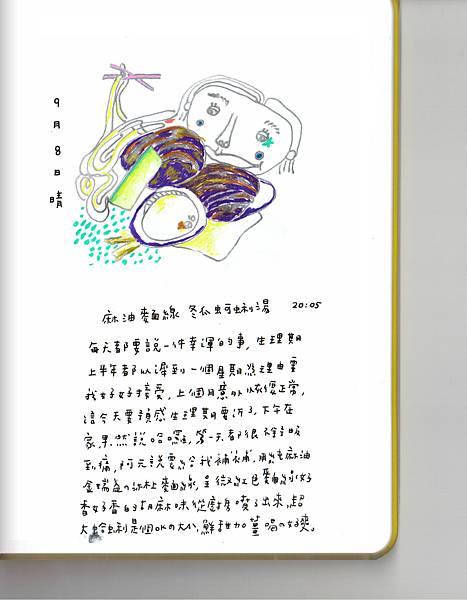 9月8日晴
麻油麵線 冬瓜蛤蜊湯 20:05
每天都要說一件幸運的事,生理期
上半年都以遲到一個星期為理由要
我好好接受,上個月意外恢復正常,
這今天要預感生理期要所了,下午在
家,果然說哈囉,第一天都很
到痛,阿元說要給我補補,用純麻油
金瑞益の麻麵線,呈微紅色麵線好
香好香的胡麻味從廚房噴了出來,超
大蛤蜊是個OKの大小,鮮甜加薑喝の好爽。